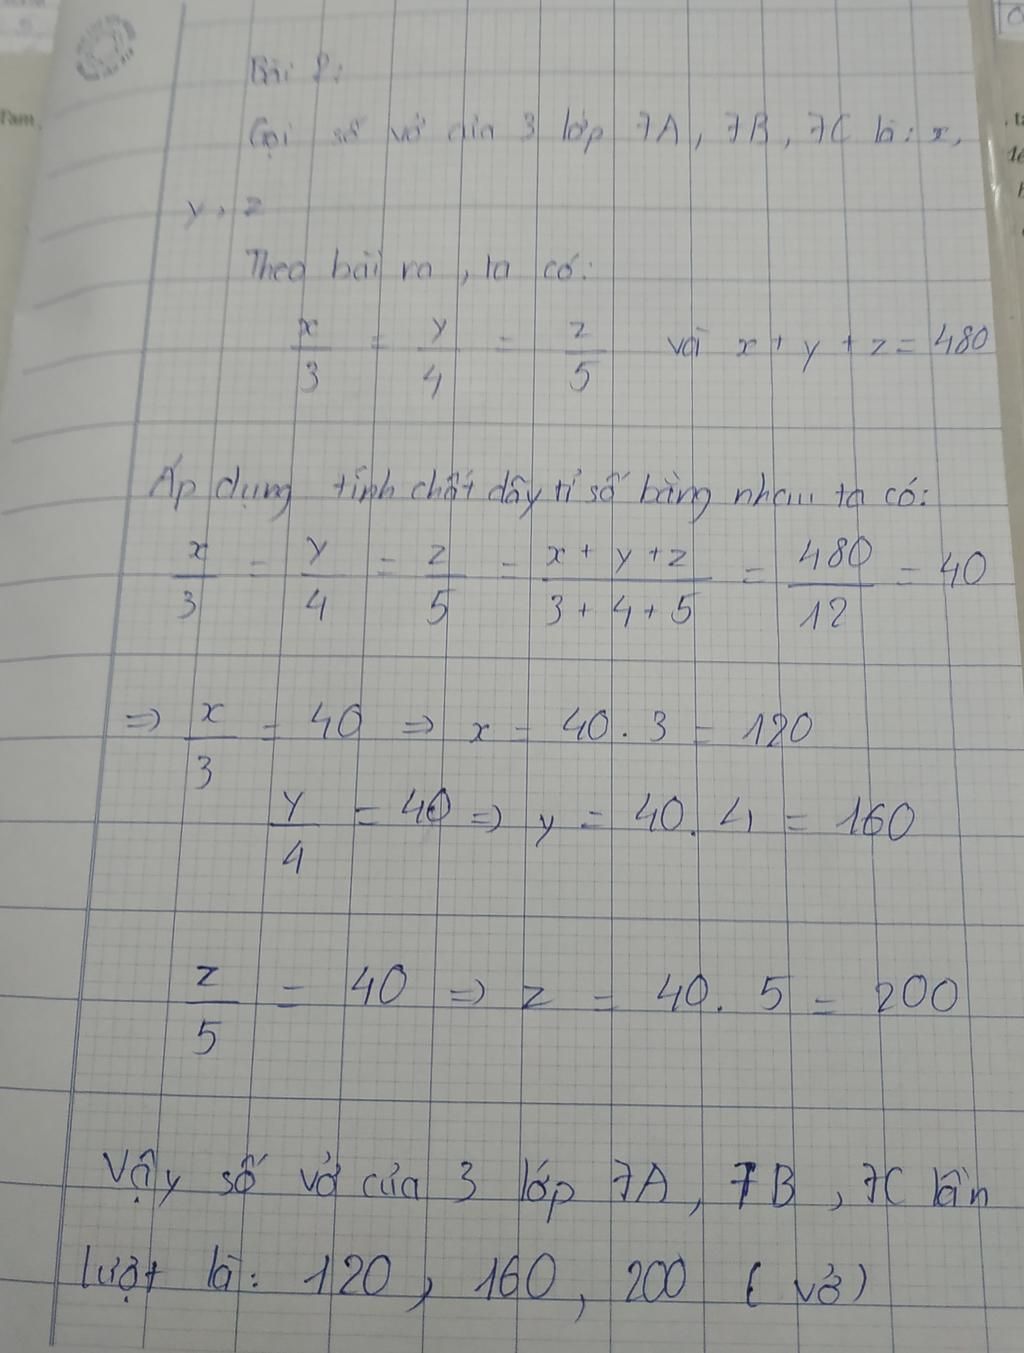 Bài 8:
Gọi số vở của 3 lớp 7A, 7B, 7C là: x,
y, z
Theo bài ra, ta có:
x/3 = y/4 = z/5 với x + y + z = 480
Áp dụng tính chất dãy tỉ số bằng nhau ta có:
x/3 = y/4 = z/5 = x + y + z / 3 + 4 + 5 = 480/12 = 40
=> x/3 = 40 => x = 40. 3 = 120
y/4 = 40 => y = 40. 4 = 160
z/5 = 40 => z = 40. 5 = 200
Vậy số vở của 3 lớp 7A, 7B, 7C lần
lượt là: 120, 160, 200 (vở)